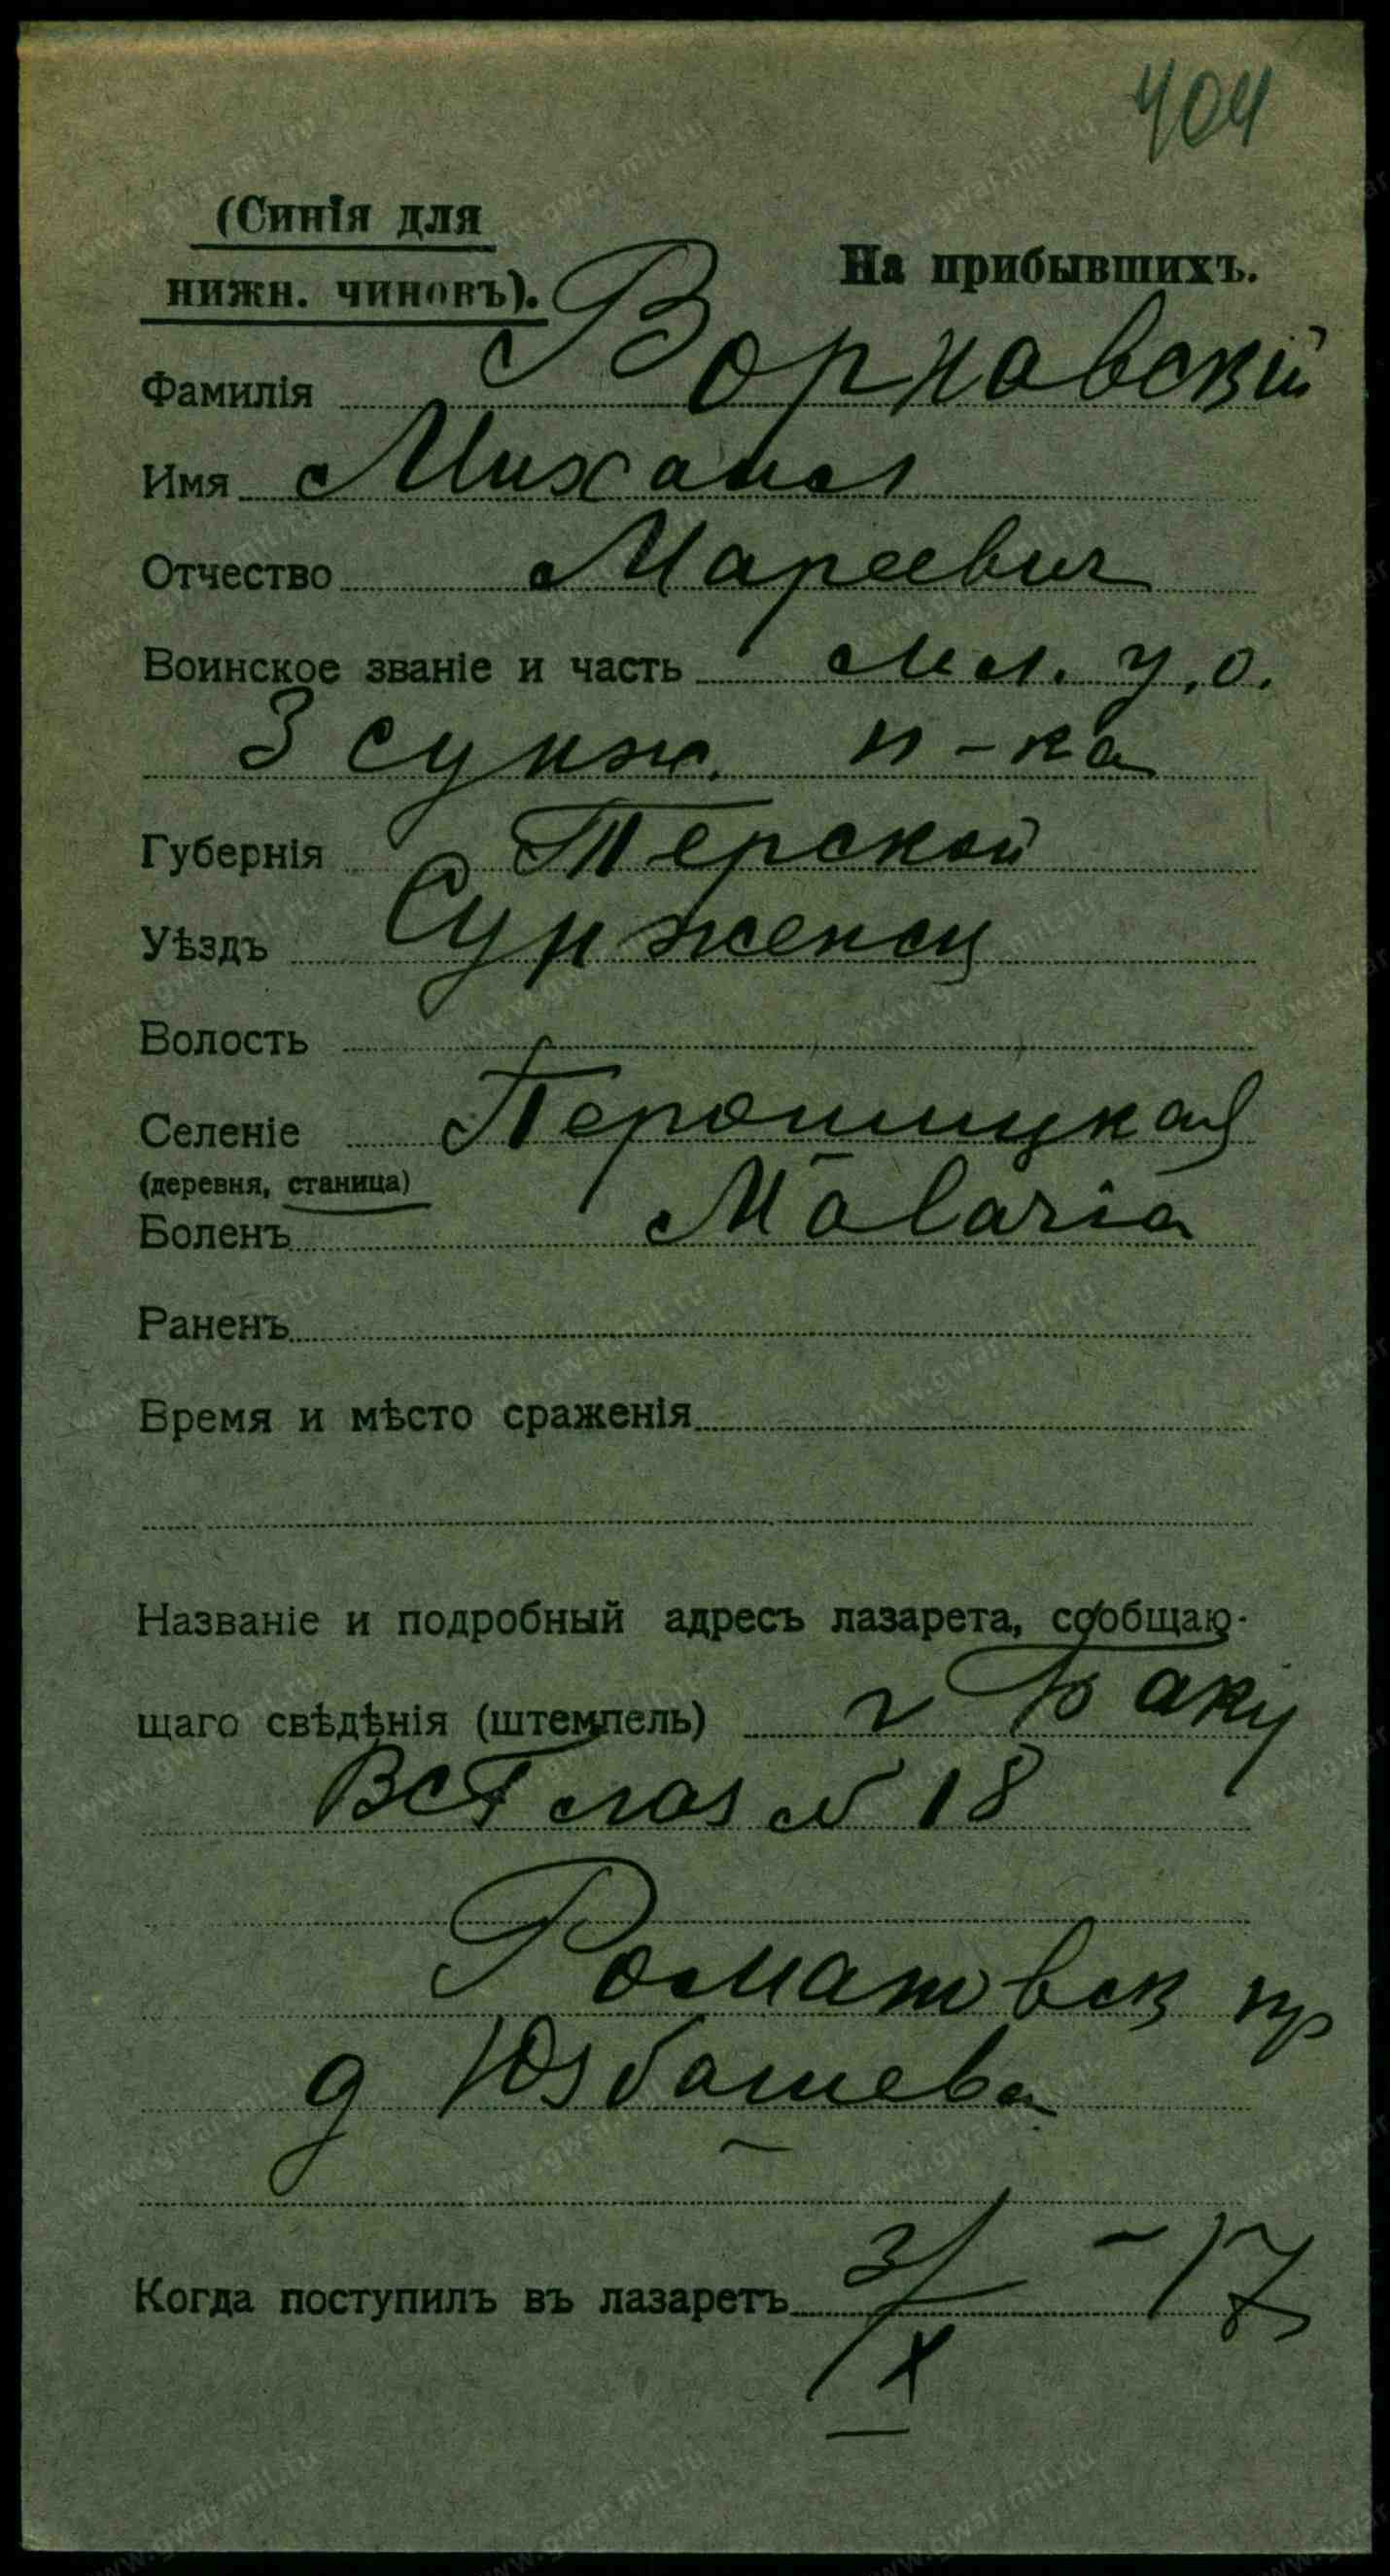 404
(Синія для
нижн. чиновъ).
На прибывшихъ.
Фамилія Ворнавскій
Имя Михаил
Отчество Мареевич
Воинское званіе и часть мл. у. о.
3 сунж. п-ка
Губернія Терской
Уѣздъ Сунженск
Волость
Селеніе Терошицкая
(деревня, станица)
Боленъ Malaria
Раненъ
Время и мѣсто сраженія
Названіе и подробный адресъ лазарета, сообщаю-
щаго свѣдѣнія (штемпель) г Баку
ВСГ лаз № 18
Романовск пр
д Юзбашева
Когда поступилъ въ лазаретъ 3/IX - 17